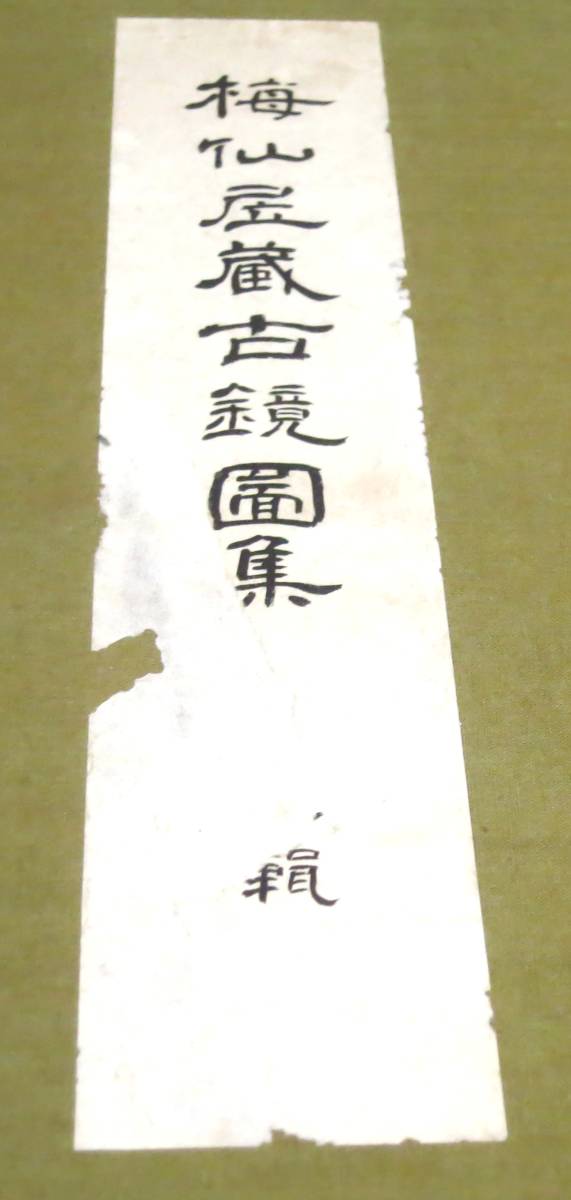 梅仙居藏古鏡圖集
輯